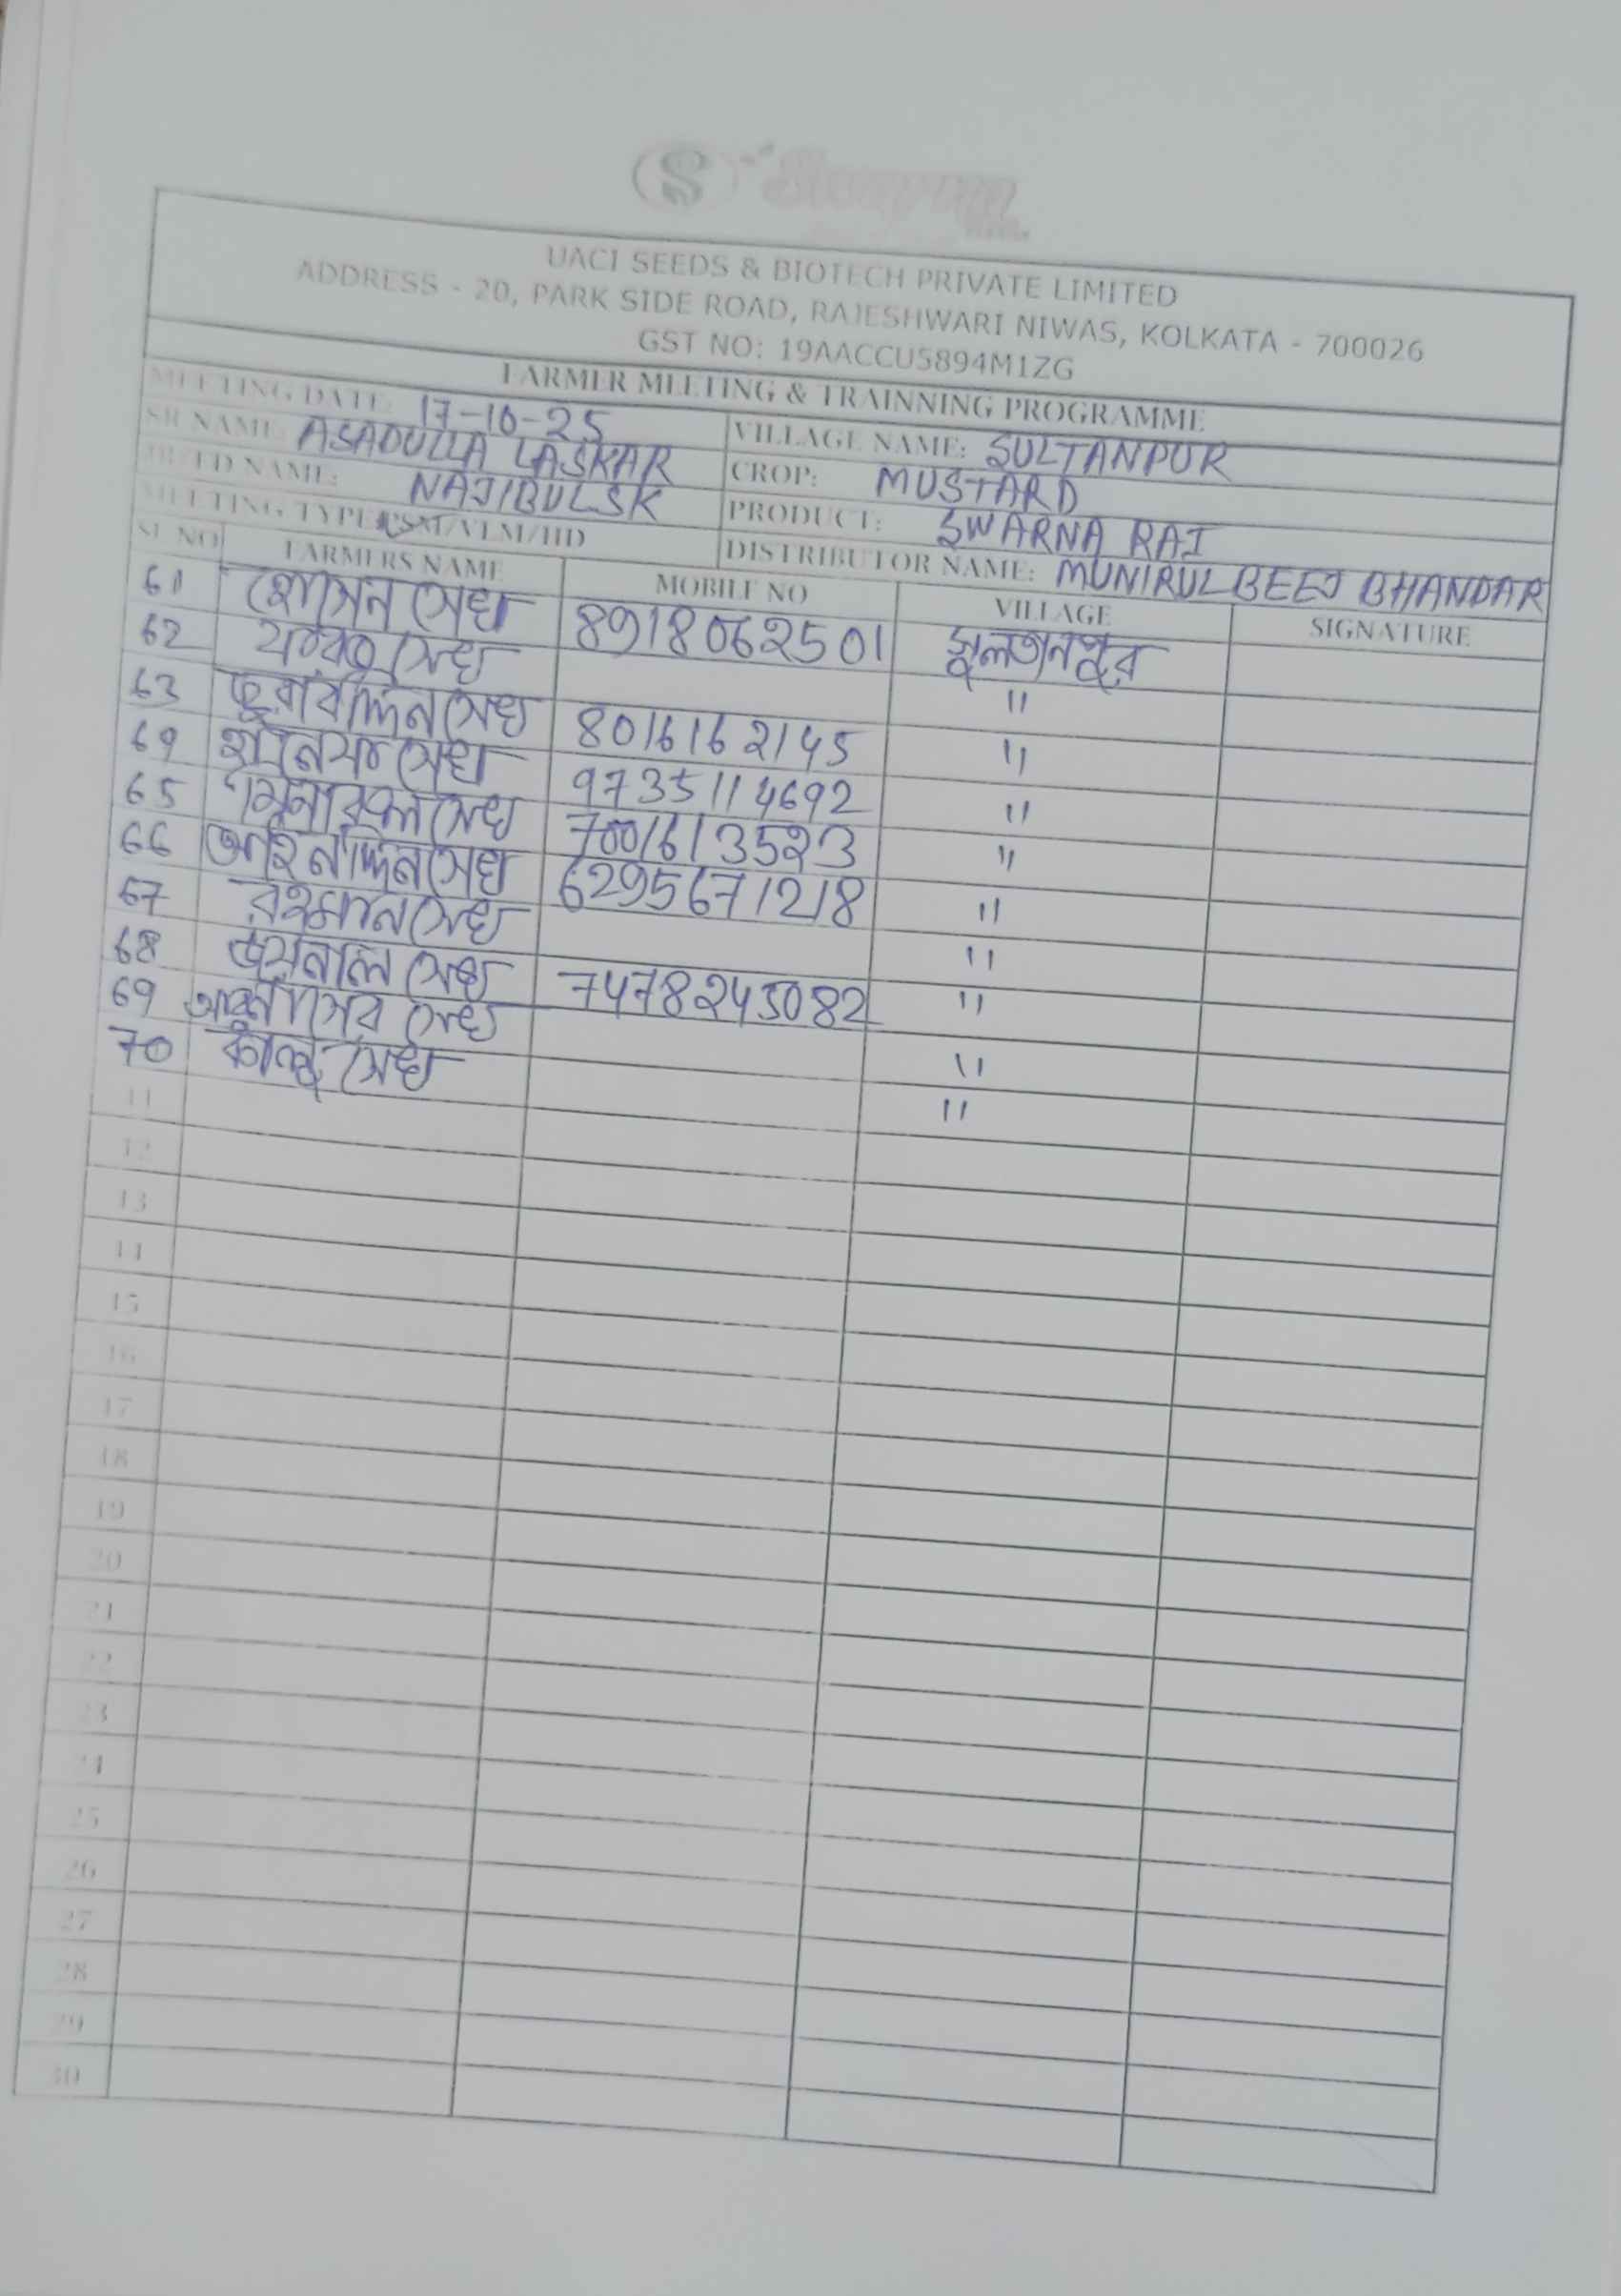 UACI SEEDS & BIOTECH PRIVATE LIMITED
ADDRESS - 20, PARK SIDE ROAD, RAJESHWARI NIWAS, KOLKATA - 700026
GST NO: 19AACCU5894M1ZG
FARMER MEETING & TRAINNING PROGRAMME
MEETING DATE: 17-10-25 VILLAGE NAME: SULTANPUR
SR NAME: ASADULLA LASKAR CROP: MUSTARD
NAME: NAJIBUL SK PRODUCT: SWARNA RAI
MEETING TYPE: DISTRIBUTOR NAME: MUNIRUL BEEJ BHANDAR
SL NO FARMERS NAME MOBILE NO VILLAGE SIGNATURE
61 সেখ 8918062501 সুলতানপুর
62 সেখ "
63 সেখ 8016162145 "
64 সেখ 9735114692 "
65 সেখ 7001613523 "
66 সেখ 6295671218 "
67 রহমান সেখ "
68 সেখ 7478245082 "
69 সেখ "
70 কালু সেখ "
11
12
13
14
15
16
17
18
19
20
21
22
23
24
25
26
27
28
29
30